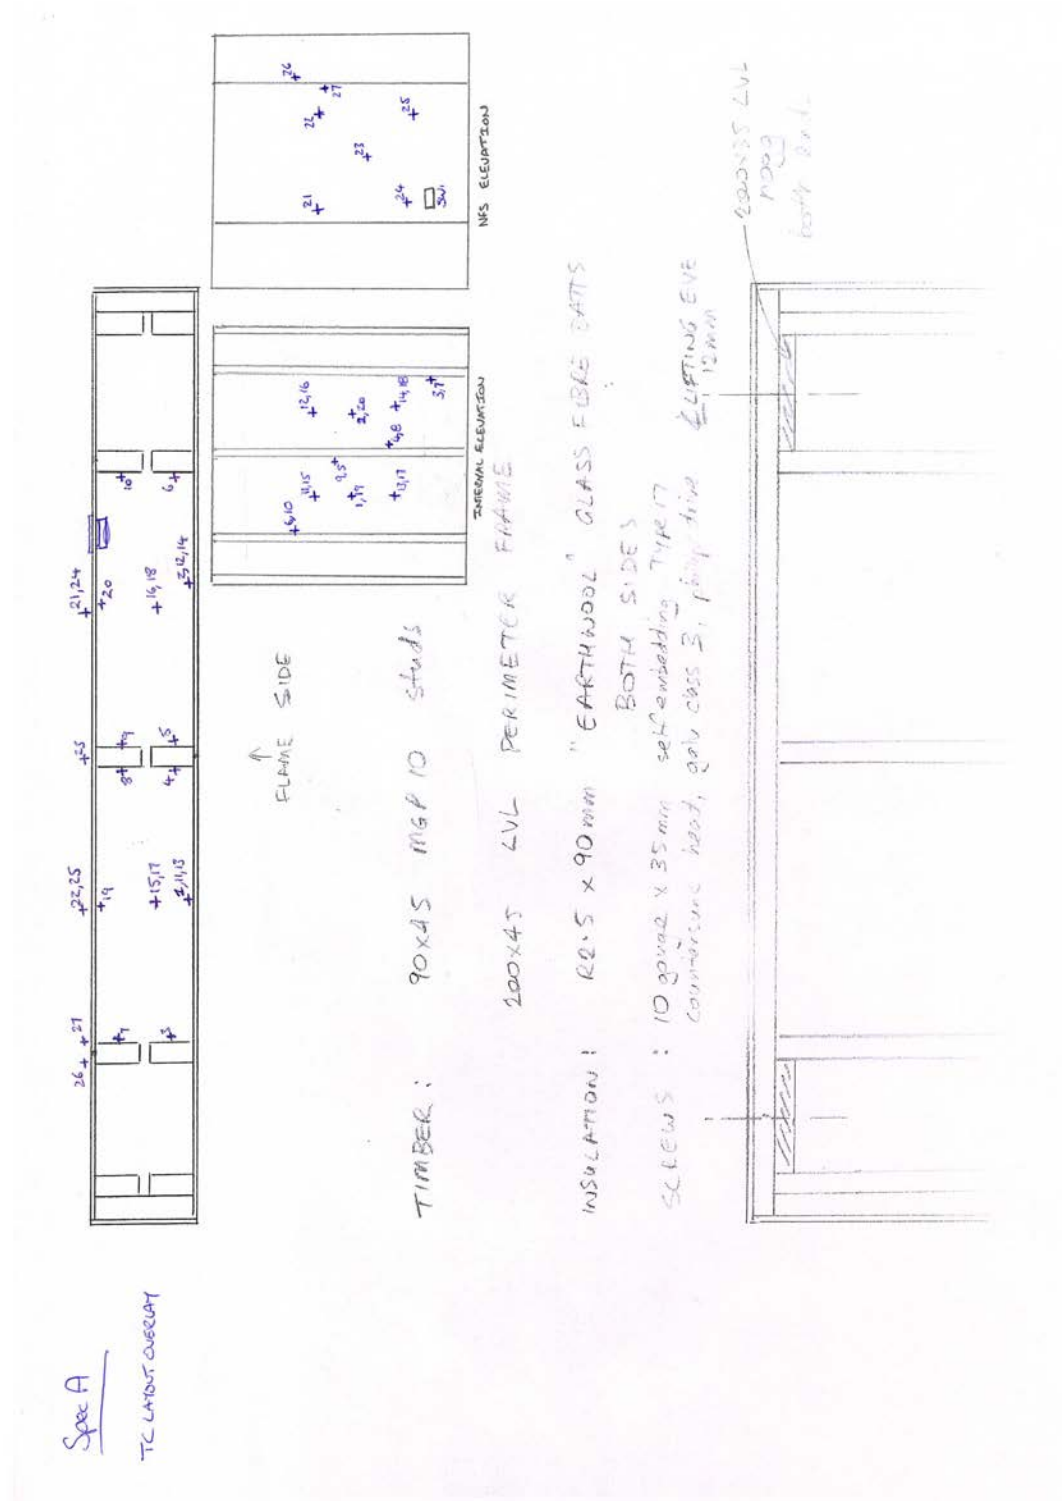 Spec A
TC LAYOUT OVERLAY
26
27
22,25
25
21,24
7
19
8
9
20
10
3
1,11,13
15,17
4
5
16,18
3,12,14
6
↑
FLAME SIDE
6,10
11,15
9,5
1,19
13,17
12,16
2,20
4,8
14,18
3,7
INTERNAL ELEVATION
21
22
26
27
23
24
25
SW1
NFS ELEVATION
TIMBER : 90x45 MGP 10 studs
200x45 LVL PERIMETER FRAME
INSULATION : R2.5 x 90mm "EARTHWOOL" GLASS FIBRE BATTS
BOTH SIDES
SCREWS : 10 gauge x 35mm self embedding TYPE 17
countersunk head, galv class 3, philip drive
LIFTING EYE
12mm
200x35 LVL
nogg
both ends